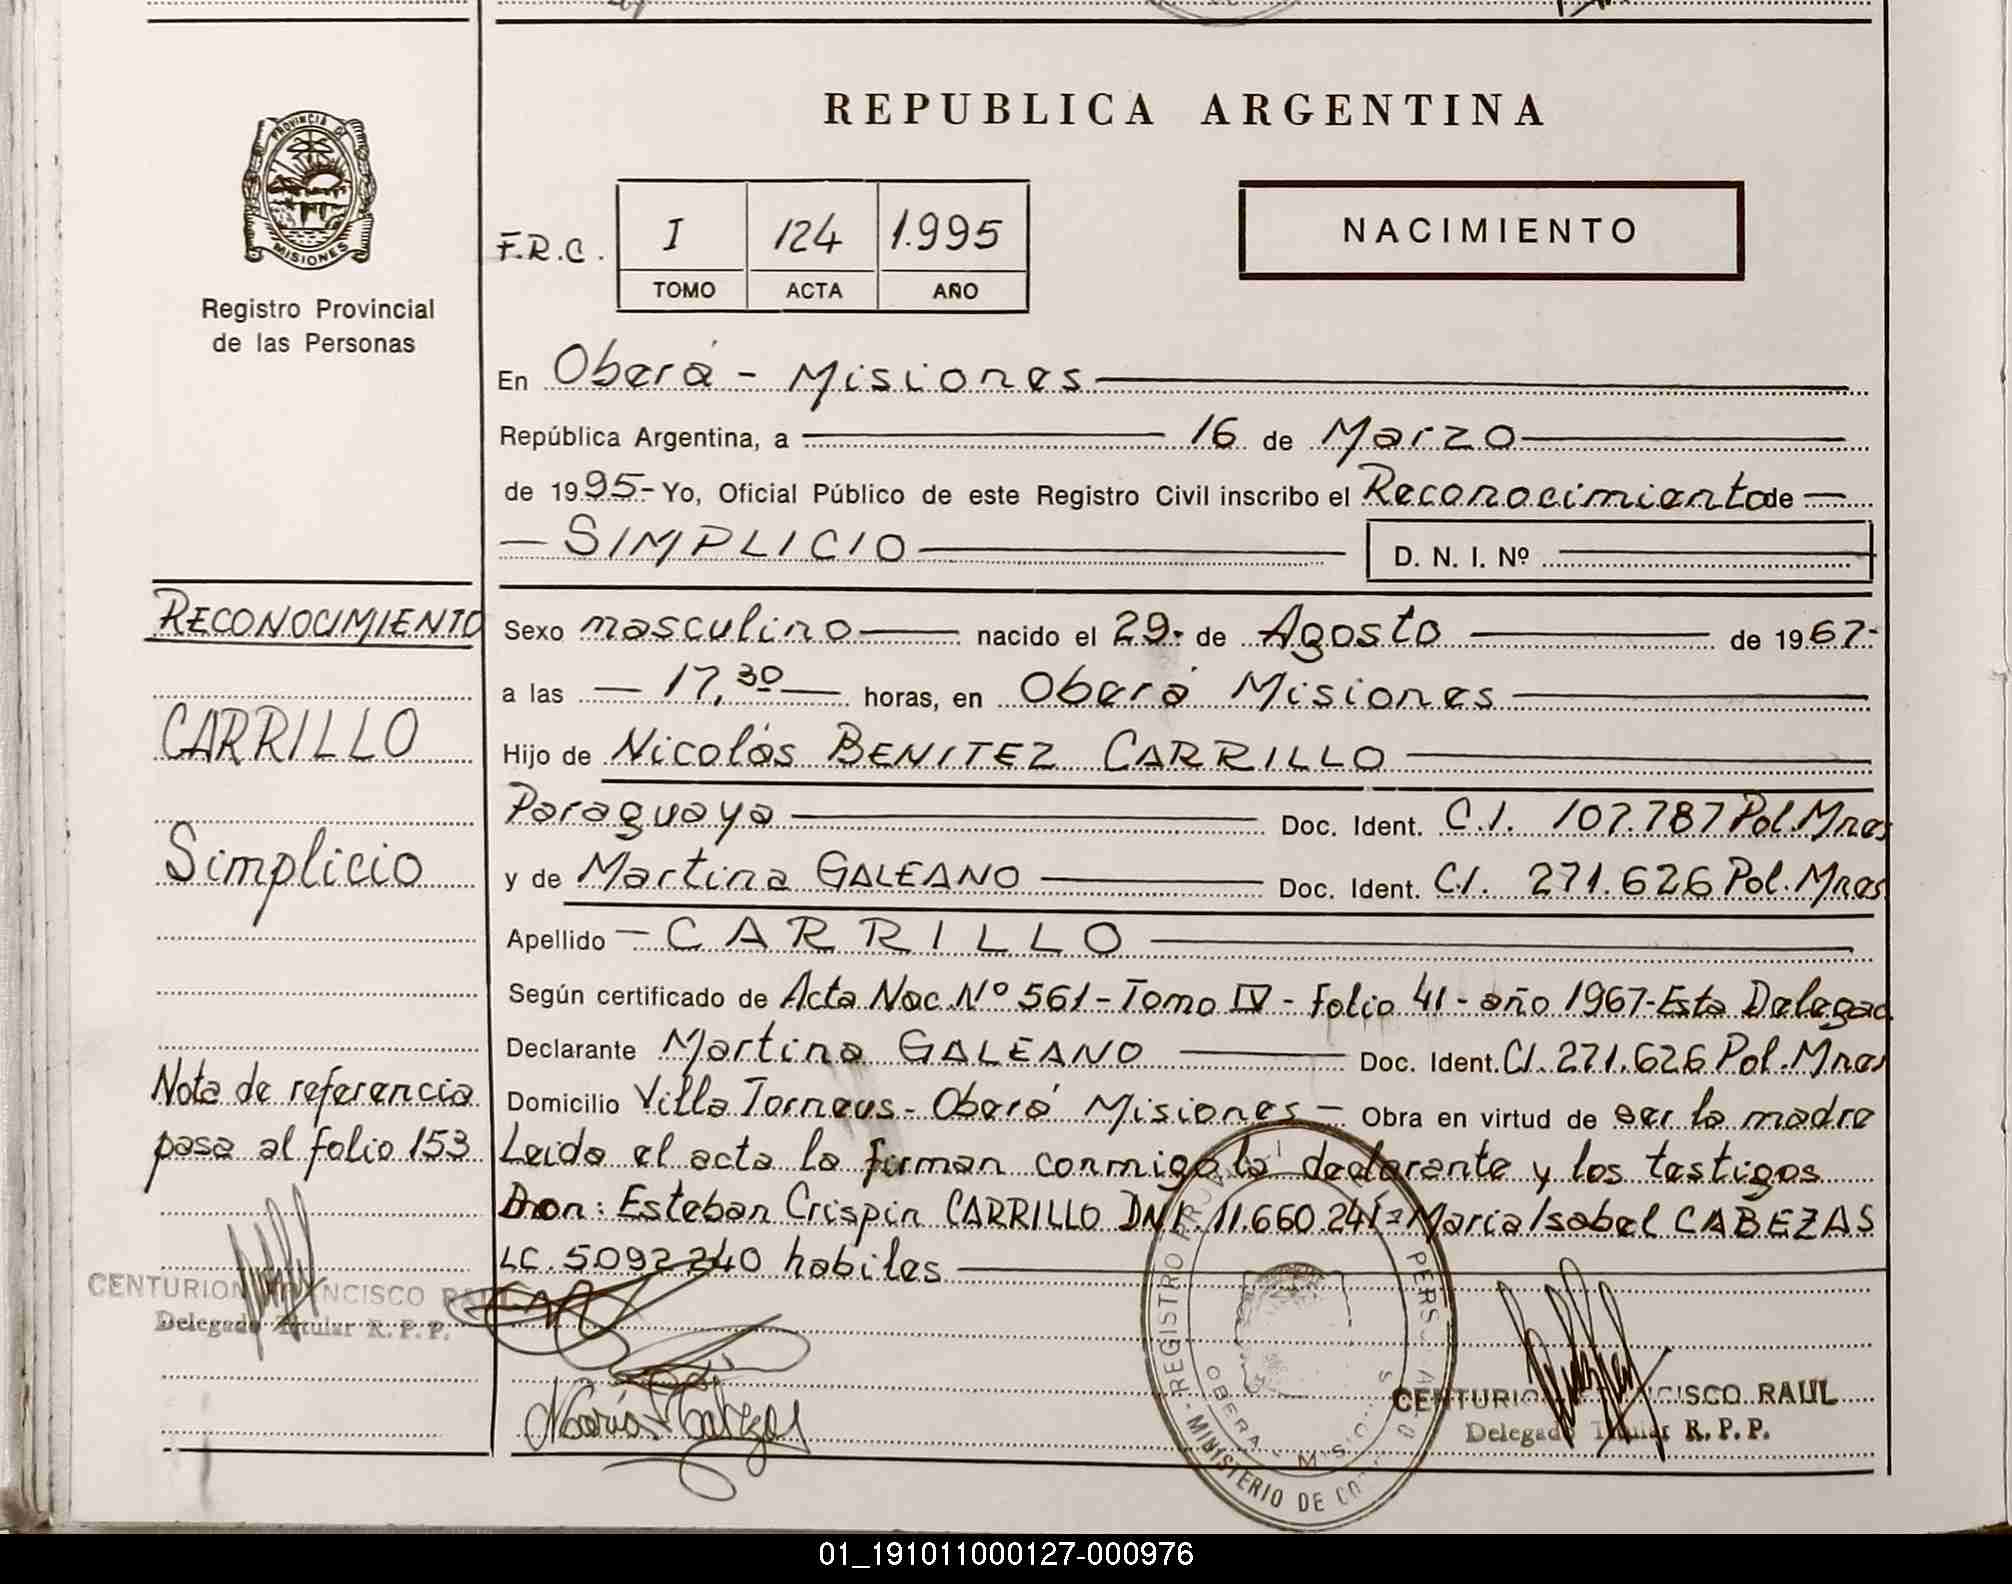 REPUBLICA ARGENTINA
PROVINCIA DE
MISIONES
Registro Provincial
de las Personas
F.R.C. I 124 1.995
TOMO ACTA AÑO
NACIMIENTO
En Oberá - Misiones
República Argentina, a 16 de Marzo
de 1995- Yo, Oficial Público de este Registro Civil inscribo el Reconocimiento de
SIMPLICIO D. N. I. Nº
Sexo masculino nacido el 29- de Agosto de 1967-
a las 17,30 horas, en Oberá Misiones
Hijo de Nicolás BENITEZ CARRILLO
Paraguaya Doc. Ident. C.I. 107.787 Pol.Mnes
y de Martina GALEANO Doc. Ident. C.I. 271.626 Pol.Mnes
Apellido CARRILLO
Según certificado de Acta Nac.Nº 561- Tomo IV - Folio 41 - año 1967-Esta Delegac
Declarante Martina GALEANO Doc. Ident. CI. 271.626 Pol.Mnes
Domicilio Villa Torneus - Oberá Misiones - Obra en virtud de ser la madre
Leida el acta la firman conmigo la declarante y los testigos
Don: Esteban Crispin CARRILLO DNI. 11.660.241= Maria Isabel CABEZAS
LC. 5092240 habiles
RECONOCIMIENTO
CARRILLO
Simplicio
Nota de referencia
pasa al folio 153
CENTURION FRANCISCO RAUL
Delegado Titular R. P. P.
REGISTRO
OBERA
MINISTERIO DE
CENTURION FRANCISCO RAUL
Delegado Titular R. P. P.
01_191011000127-000976